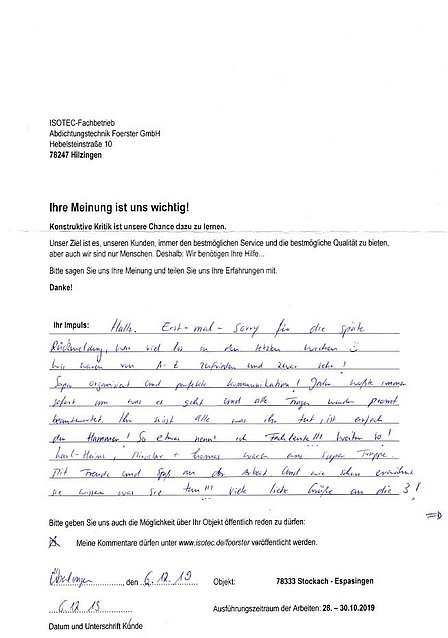 ISOTEC-Fachbetrieb
Abdichtungstechnik Foerster GmbH
Hebelsteinstraße 10
78247 Hilzingen
Ihre Meinung ist uns wichtig!
Konstruktive Kritik ist unsere Chance dazu zu lernen.
Unser Ziel ist es, unseren Kunden, immer den bestmöglichen Service und die bestmögliche Qualität zu bieten,
aber auch wir sind nur Menschen. Deshalb: Wir benötigen Ihre Hilfe...
Bitte sagen Sie uns Ihre Meinung und teilen Sie uns Ihre Erfahrungen mit.
Danke!
Ihr Impuls: Hallo. Erst-mal-Sorry für die späte
Rückmeldung, war viel los in den letzten Wochen
Wir waren von A-Z zufrieden und zwar sehr!
Super organisiert und perfekte Kommunikation! Jeder wußte immer
sofort um was es geht und alle Fragen wurden prompt
beantwortet. Ihr wisst alle was ihr tut, ist einfach
der Hammer! So etwas nenn' ich Fachleute!!! Weiter so!
Karl-Heinz, + Thomas waren eine super Truppe.
Mit Freude und Spaß an der Arbeit und wie schon erwähnt
sie wissen was sie tun!!! Viele liebe Grüße an die 3!
Bitte geben Sie uns auch die Möglichkeit über Ihr Objekt öffentlich reden zu dürfen:
Meine Kommentare dürfen unter www.isotec.de/foerster veröffentlicht werden.
Überlingen, den 6.12.19 Objekt: 78333 Stockach - Espasingen
6.12.19 Ausführungszeitraum der Arbeiten: 28. – 30.10.2019
Datum und Unterschrift Kunde